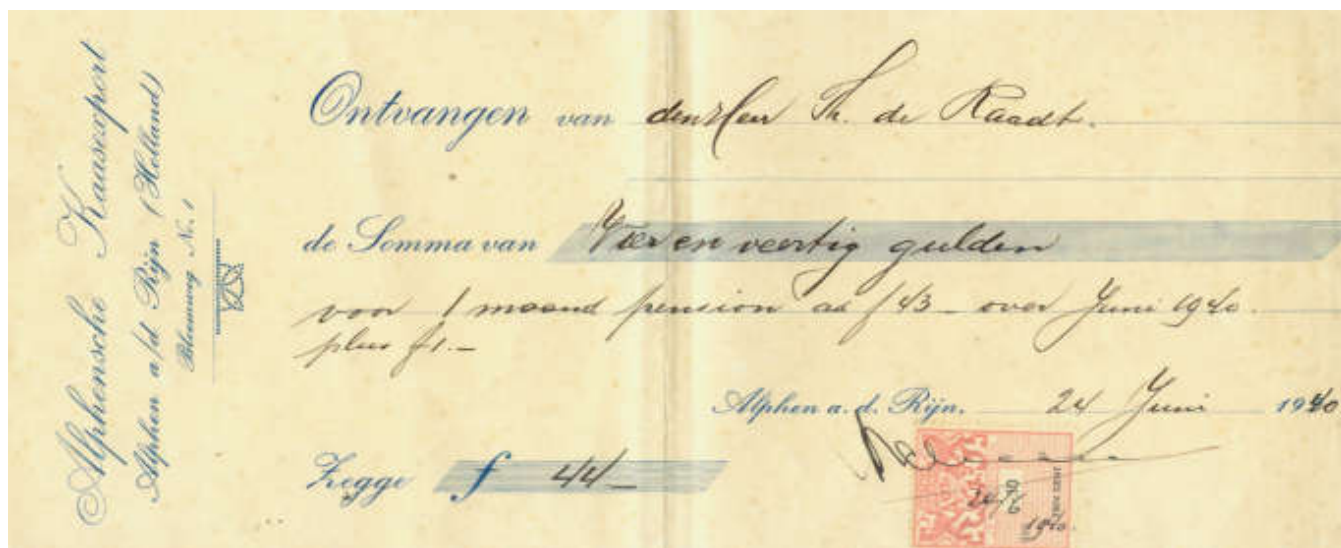 Alphensche Kaasexport
Alphen a/d Rijn (Holland)
Bleumweg No. 1
Ontvangen van den Heer Th. de Raadt.
de Somma van Vier en veertig gulden
voor 1 maand pension ad f 43 - over Juni 1940.
plus f 1.-
Alphen a. d. Rijn. 24 Juni 1940
Zegge f 44-
24/6
1940.